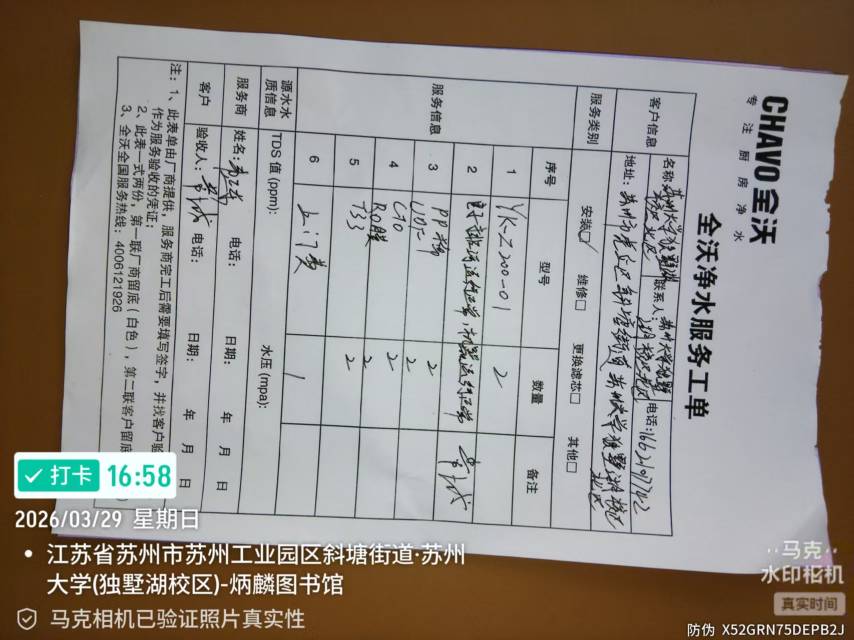 CHAVO 全沃
专注厨房净水
全沃净水服务工单
客户信息
名称: 苏州大学独墅湖校区北区
联系人:
电话:
地址: 苏州市
苏州大学独墅湖校区
北区
服务类别
安装☑ 维修□ 更换滤芯□ 其他□
服务信息
序号 型号 数量 备注
1 YK-Z200-01 2
2
机器运行正常
3 PP棉 2
UDF 2
4 C70 2
RO膜 2
5 T33 2
6 上门费 1
源水水质信息
TDS值 (ppm): 水压 (mpa):
服务商 姓名: 电话: 日期: 年 月 日
客户 验收人: 电话: 日期: 年 月 日
注: 1、此表单由厂商提供, 服务商完工后需要填写签字, 并找客户验
作为服务验收的凭证;
2、此表一式两份, 第一联厂商留底 (白色), 第二联客户留底
3、全沃全国服务热线: 4006121926
打卡 16:58
2026/03/29 星期日
江苏省苏州市苏州工业园区斜塘街道·苏州
大学(独墅湖校区)-炳麟图书馆
马克相机已验证照片真实性
马克
水印相机
真实时间
防伪 X52GRN75DEPB2J